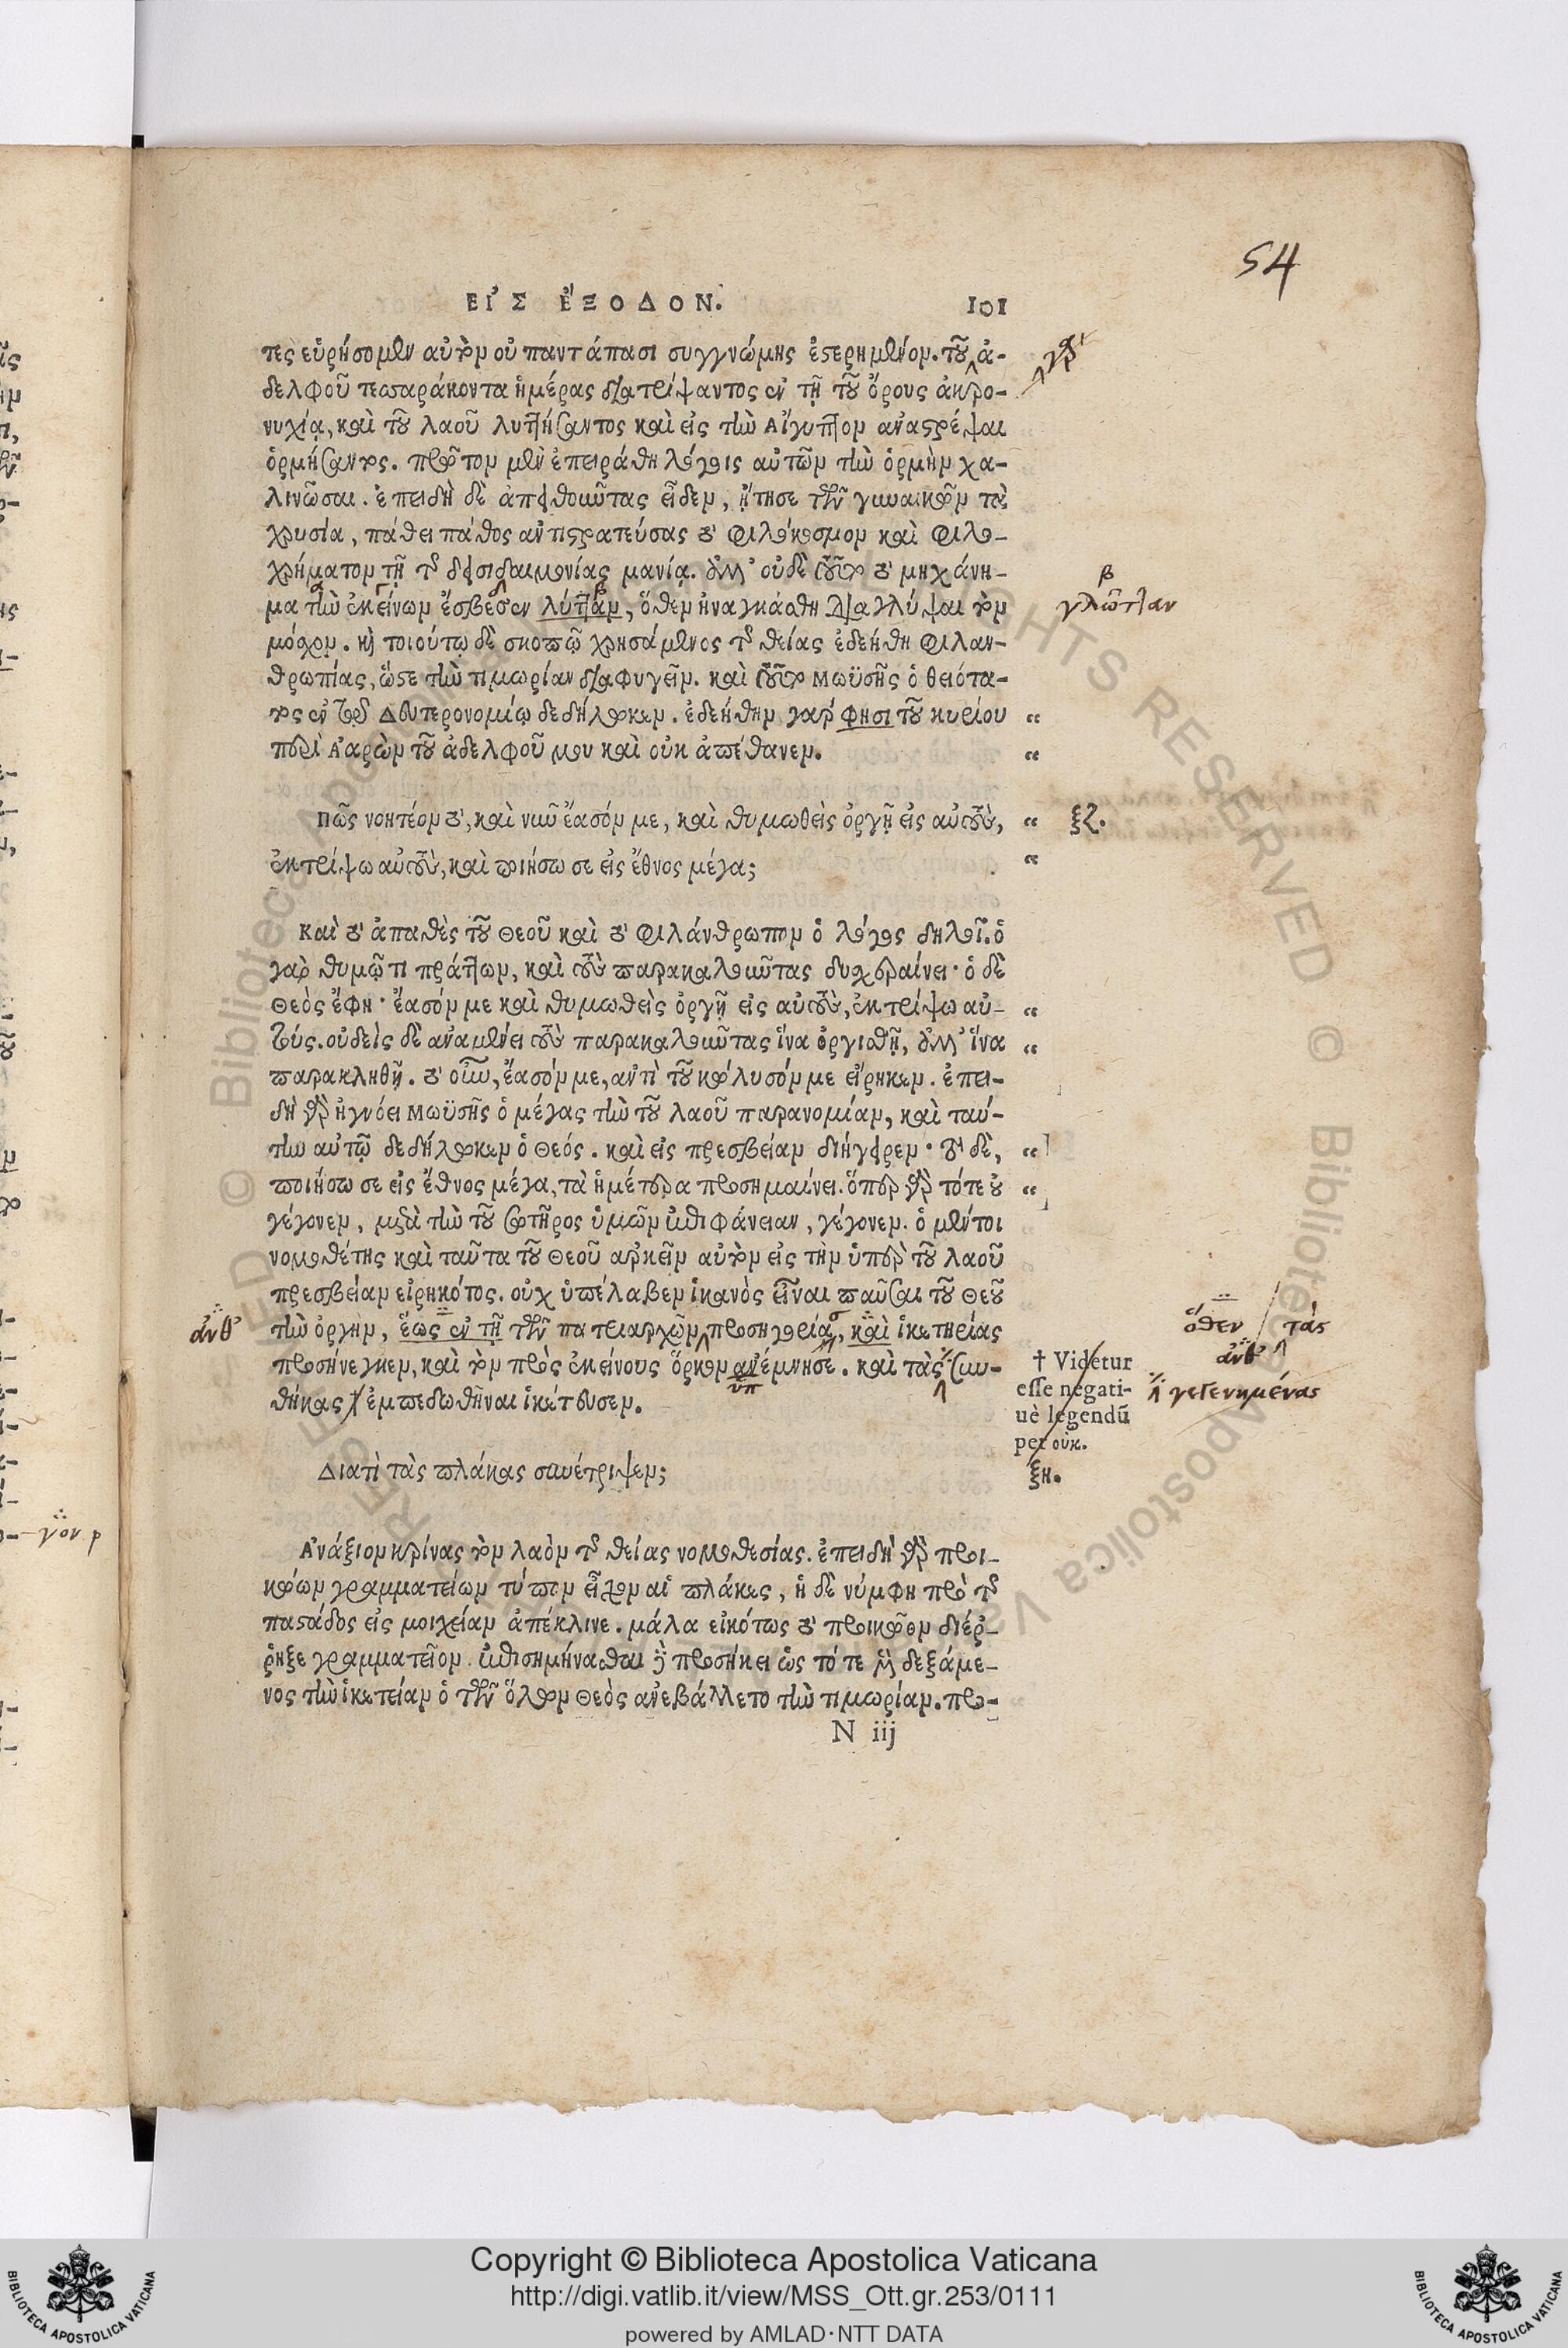 54
ΕΙ᾿Σ ἘΞΟΔΟΝ. 101
τες εὑρήσομεν αὐτὸν οὐ παντάπασι συγγνώμης ἐστερημένον. τοῦ ἀ-
δελφοῦ τεσσαράκοντα ἡμέρας διατρίψαντος ἐν τῇ τοῦ ὄρους ἀκρο-
νυχίᾳ, καὶ τοῦ λαοῦ λυττήσαντος καὶ εἰς τὴν Αἴγυπτον ἀναστρέψαι
ὁρμήσαντος. πρῶτον μὲν ἐπειράθη λόγοις αὐτῶν τὴν ὁρμὴν χα-
λινῶσαι. ἐπειδὴ δὲ ἀπειθοῦντας εἶδεν, ᾔτησε τῶν γυναικῶν τὰ
χρυσία, πάθει πάθος ἀντιστρατεύσας τὸ φιλόκοσμον καὶ φιλο-
χρήματον τῇ τῆς δεισιδαιμονίας μανίᾳ. ἀλλ' οὐδὲ τοῦτο τὸ μηχάνη-
μα τὴν ἐκείνων ἔσβεσεν λύτταν, ὅθεν ἠναγκάσθη διαγλύψαι τὸν
μόσχον. καὶ τοιούτῳ δὲ σκοπῷ χρησάμενος τῆς θείας ἐδεήθη φιλαν-
θρωπίας, ὥστε τὴν τιμωρίαν διαφυγεῖν. καὶ τοῦτο Μωϋσῆς ὁ θειότα-
τος ἐν τῷ Δευτερονομίῳ δεδήλωκεν. ἐδεήθην γάρ φησι τοῦ κυρίου “
περὶ Ἀαρὼν τοῦ ἀδελφοῦ μου καὶ οὐκ ἀπέθανεν. “
γλῶτταν
Πῶς νοητέον τὸ, καὶ νῦν ἔασόν με, καὶ θυμωθεὶς ὀργῇ εἰς αὐτοὺς, “ ξζ.
ἐκτρίψω αὐτοὺς, καὶ ποιήσω σε εἰς ἔθνος μέγα; “
Καὶ τὸ ἀπαθὲς τοῦ Θεοῦ καὶ τὸ φιλάνθρωπον ὁ λόγος δηλοῖ. ὁ
γὰρ θυμῷ τι πράττων, καὶ τοὺς παρακαλοῦντας δυσχεραίνει· ὁ δὲ
Θεὸς ἔφη· ἔασόν με καὶ θυμωθεὶς ὀργῇ εἰς αὐτοὺς, ἐκτρίψω αὐ- “
τούς. οὐδεὶς δὲ ἀναμένει τοὺς παρακαλοῦντας ἵνα ὀργισθῇ, ἀλλ' ἵνα “
παρακληθῇ. τὸ οὖν, ἔασόν με, ἀντὶ τοῦ κώλυσόν με εἴρηκεν. ἐπει-
δὴ γὰρ ἠγνόει Μωϋσῆς ὁ μέγας τὴν τοῦ λαοῦ παρανομίαν, καὶ ταύ-
την αὐτῷ δεδήλωκεν ὁ Θεός. καὶ εἰς πρεσβείαν διήγειρεν· τὸ δὲ, “
ποιήσω σε εἰς ἔθνος μέγα, τὰ ἡμέτερα προσημαίνει. ὅπερ γὰρ τότε οὐ “
γέγονεν, μετὰ τὴν τοῦ σωτῆρος ὑμῶν ἐπιφάνειαν, γέγονεν. ὁ μέντοι
νομοθέτης καὶ ταῦτα τοῦ Θεοῦ ἀρκεῖν αὐτὸν εἰς τὴν ὑπὲρ τοῦ λαοῦ
πρεσβείαν εἰρηκότος. οὐχ ὑπέλαβεν ἱκανὸς εἶναι παῦσαι τοῦ Θεοῦ
τὴν ὀργὴν, ἕως ἐν τῇ τῶν πατριαρχῶν προσηγορίᾳ, καὶ ἱκετηρίας
προσήνεγκεν, καὶ τὸν πρὸς ἐκείνους ὅρκον ἀνέμνησε. καὶ τὰς συν-
θήκας † ἐμπεδωθῆναι ἱκέτευσεν.
ἀνθ'
ὑπ
ὅθεν / τὰς
ἀνθ'
γεγενημένας
† Videtur
esse negati-
uè legendũ
per οὐκ.
ξη.
Διατὶ τὰς πλάκας συνέτριψεν;
Ἀνάξιον κρίνας τὸν λαὸν τῆς θείας νομοθεσίας. ἐπειδὴ γὰρ προι-
κῴων γραμματείων τύπον εἶχον αἱ πλάκες, ἡ δὲ νύμφη πρὸ τῆς
παστάδος εἰς μοιχείαν ἀπέκλινε. μάλα εἰκότως τὸ προικῷον διέρ-
ρηξε γραμματεῖον. ἐπισημήνασθαι δὲ προσήκει ὡς τότε μὴ δεξάμε-
νος τὴν ἱκετείαν ὁ τῶν ὅλων Θεὸς ἀνεβάλλετο τὴν τιμωρίαν. προ-
N iij
γον ρ
Copyright © Biblioteca Apostolica Vaticana
http://digi.vatlib.it/view/MSS_Ott.gr.253/0111
powered by AMLAD·NTT DATA